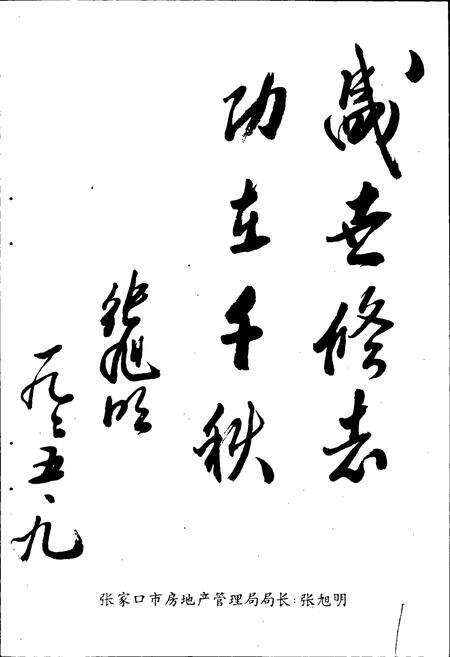 盛世修志
功在千秋
张旭明
一九九二、五、九
张家口市房地产管理局局长:张旭明